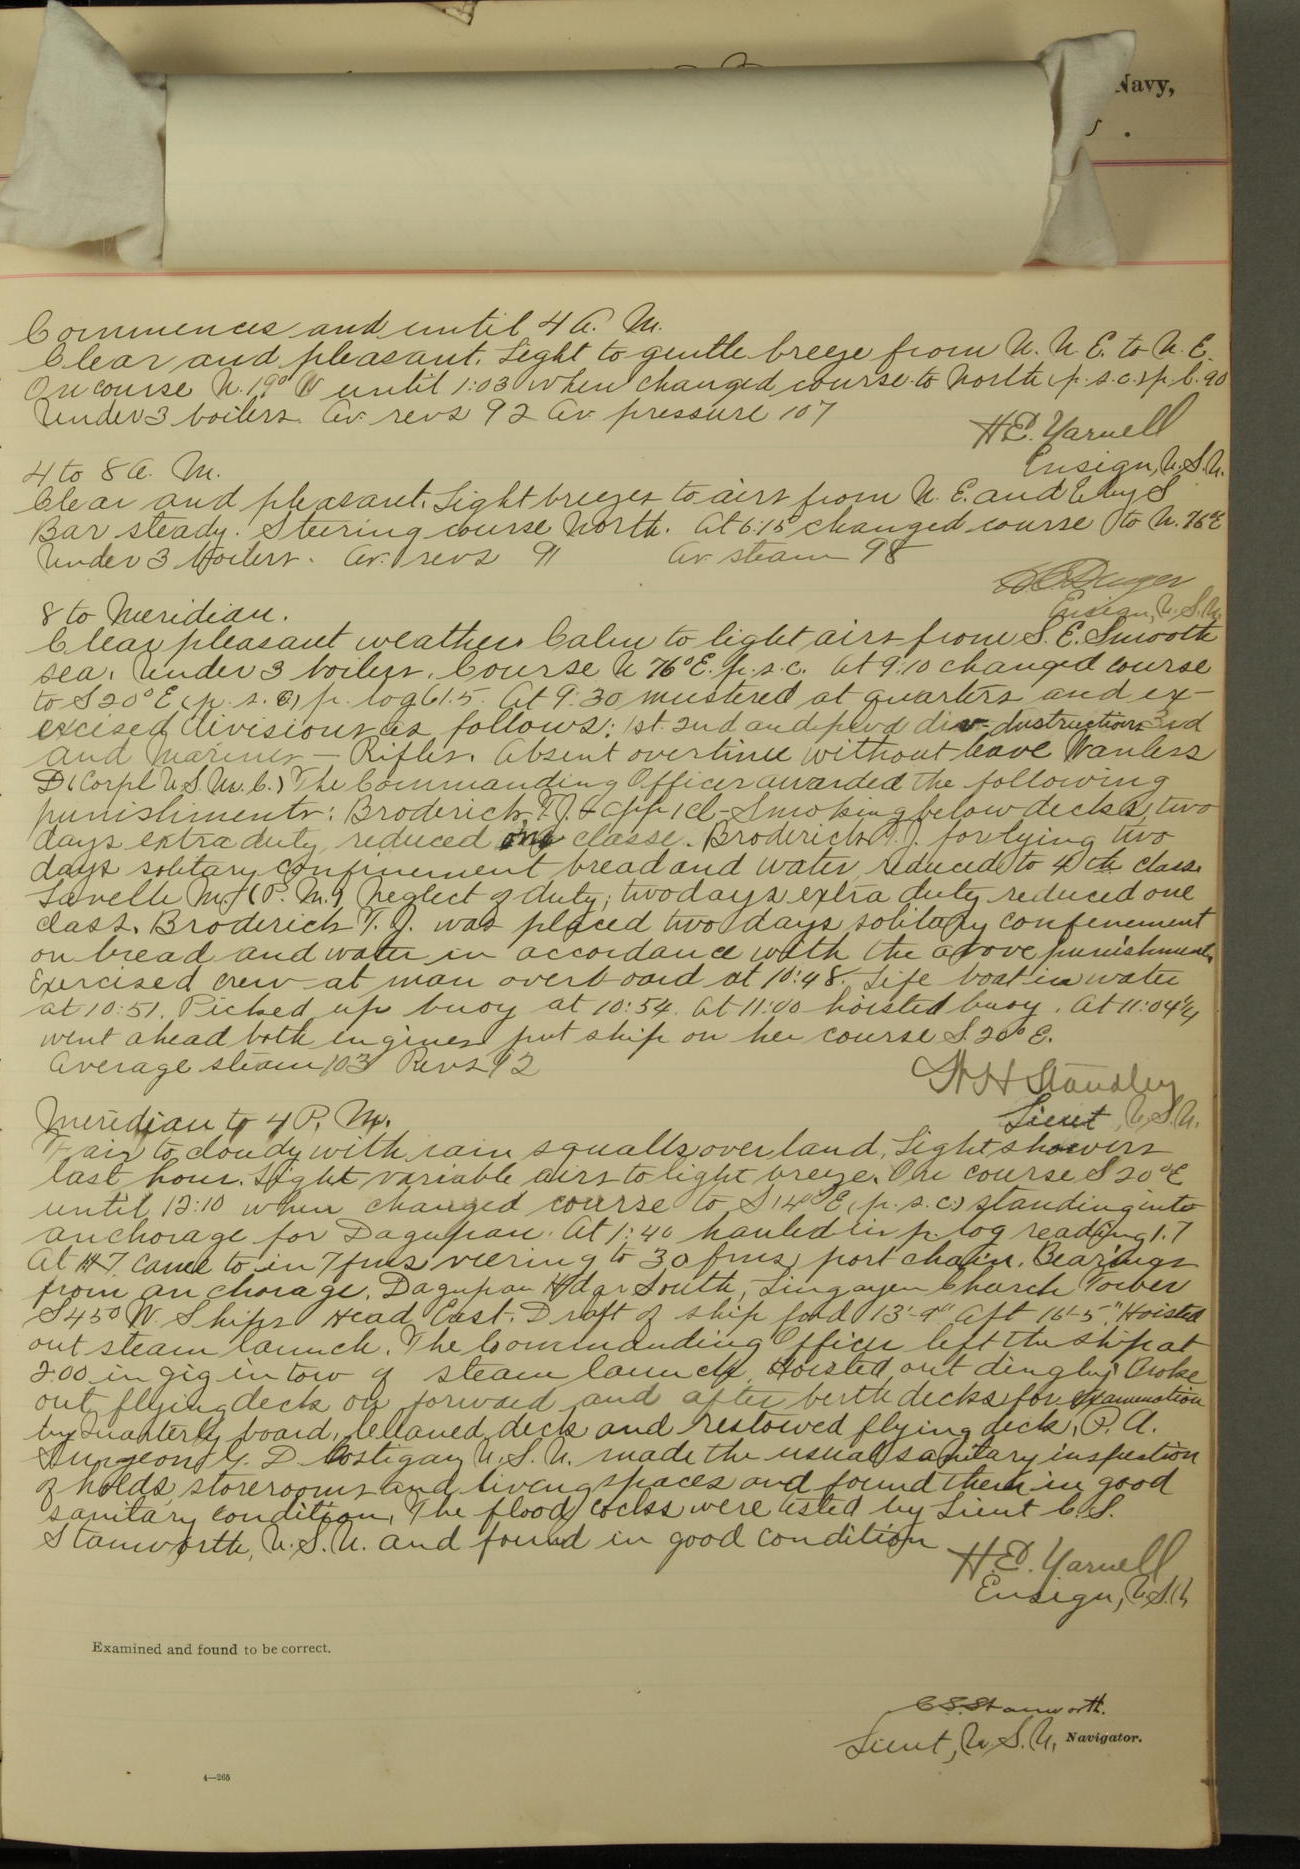 Navy,
Commences and until 4 A. M.
Clear and pleasant. Light to gentle breeze from N. N. E. to N. E.
On course N. 19° W until 1:03 when changed course to North (p. s. c.) p. l. 90
Under 3 boilers. Av. revs 92 Av. pressure 107
H.E. Yarnell
Ensign, U.S.N.
4 to 8 A. M.
Clear and pleasant. Light breezes to airs from N. E. and E by S
Bar steady. Steering course North. At 6:15 changed course to N. 76°E
Under 3 boilers. Av. revs 91 Av steam 98
Ensign, U.S.N.
8 to Meridian.
Clear pleasant weather. Calm to light airs from S. E. Smooth
sea. Under 3 boilers. Course N 76°E. p.s.c. At 9:10 changed course
to S 20° E (p. s. c) p. log 61.5. At 9:30 mustered at quarters and ex-
excised divisions as follows: 1st. 2nd and div- Instruction 3rd
and Marines — Rifles. Absent overtime without leave Wanless
D. (Corpl U.S.M.C.) The Commanding Officer awarded the following
punishments: Broderick T.J. App 1cl- Smoking below decks, two
days extra duty reduced one classe. Broderick T. J. for lying two
days solitary confinement bread and water reduced to 4th class.
Lavelle M. J. (P. M.) neglect of duty; two days extra duty reduced one
class. Broderick T. J. was placed two days solitary confenement
on bread and water in accordance with the above punishments.
Exercised crew at man overboard at 10:48. Life boat in water
at 10:51. Picked up buoy at 10:54. At 11:00 hoisted buoy. At 11:04½
went ahead both engines put ship on her course S. 20° E.
Average steam 103 Revs 92
W H Standley
Lieut, U.S.N.
Meridian to 4 P. M.
Fair to cloudy with rain squalls over land. Light showers
last hour. Light variable airs to light breeze. On course S 20°E
until 12:10 when changed course to S 14° E (p. s. c.) standing into
anchorage for Dagupan. At 1:40 hauled in p. log reading 1.7
At 1:47 came to in 7 fms veering to 30 fms port chain. Bearings
from anchorage, Dagupan Hdqr South, Lingayen Church Tower
S 45° W. Ships Head East. Draft of ship ford 13'-9" aft 16'-5". Hoisted
out steam launch. The Commanding Officer left the ship at
2:00 in gig in tow of steam launch. Hoisted out dinghy. Broke
out flying deck on forward and after berth decks for examination
by Quarterly board, cleaned deck and restowed flying deck. P. A.
Surgeon G. D. Costigan U. S. N. made the usual sanitary inspection
of holds, storerooms and living spaces and found them in good
sanitary condition. The flood cocks were tested by Lieut C. S.
Stanworth, U. S. N. and found in good condition
H. E. Yarnell
Ensign, U.S.N
Examined and found to be correct.
C.S. Stanworth.
Lieut, U. S. N., Navigator.
4—265